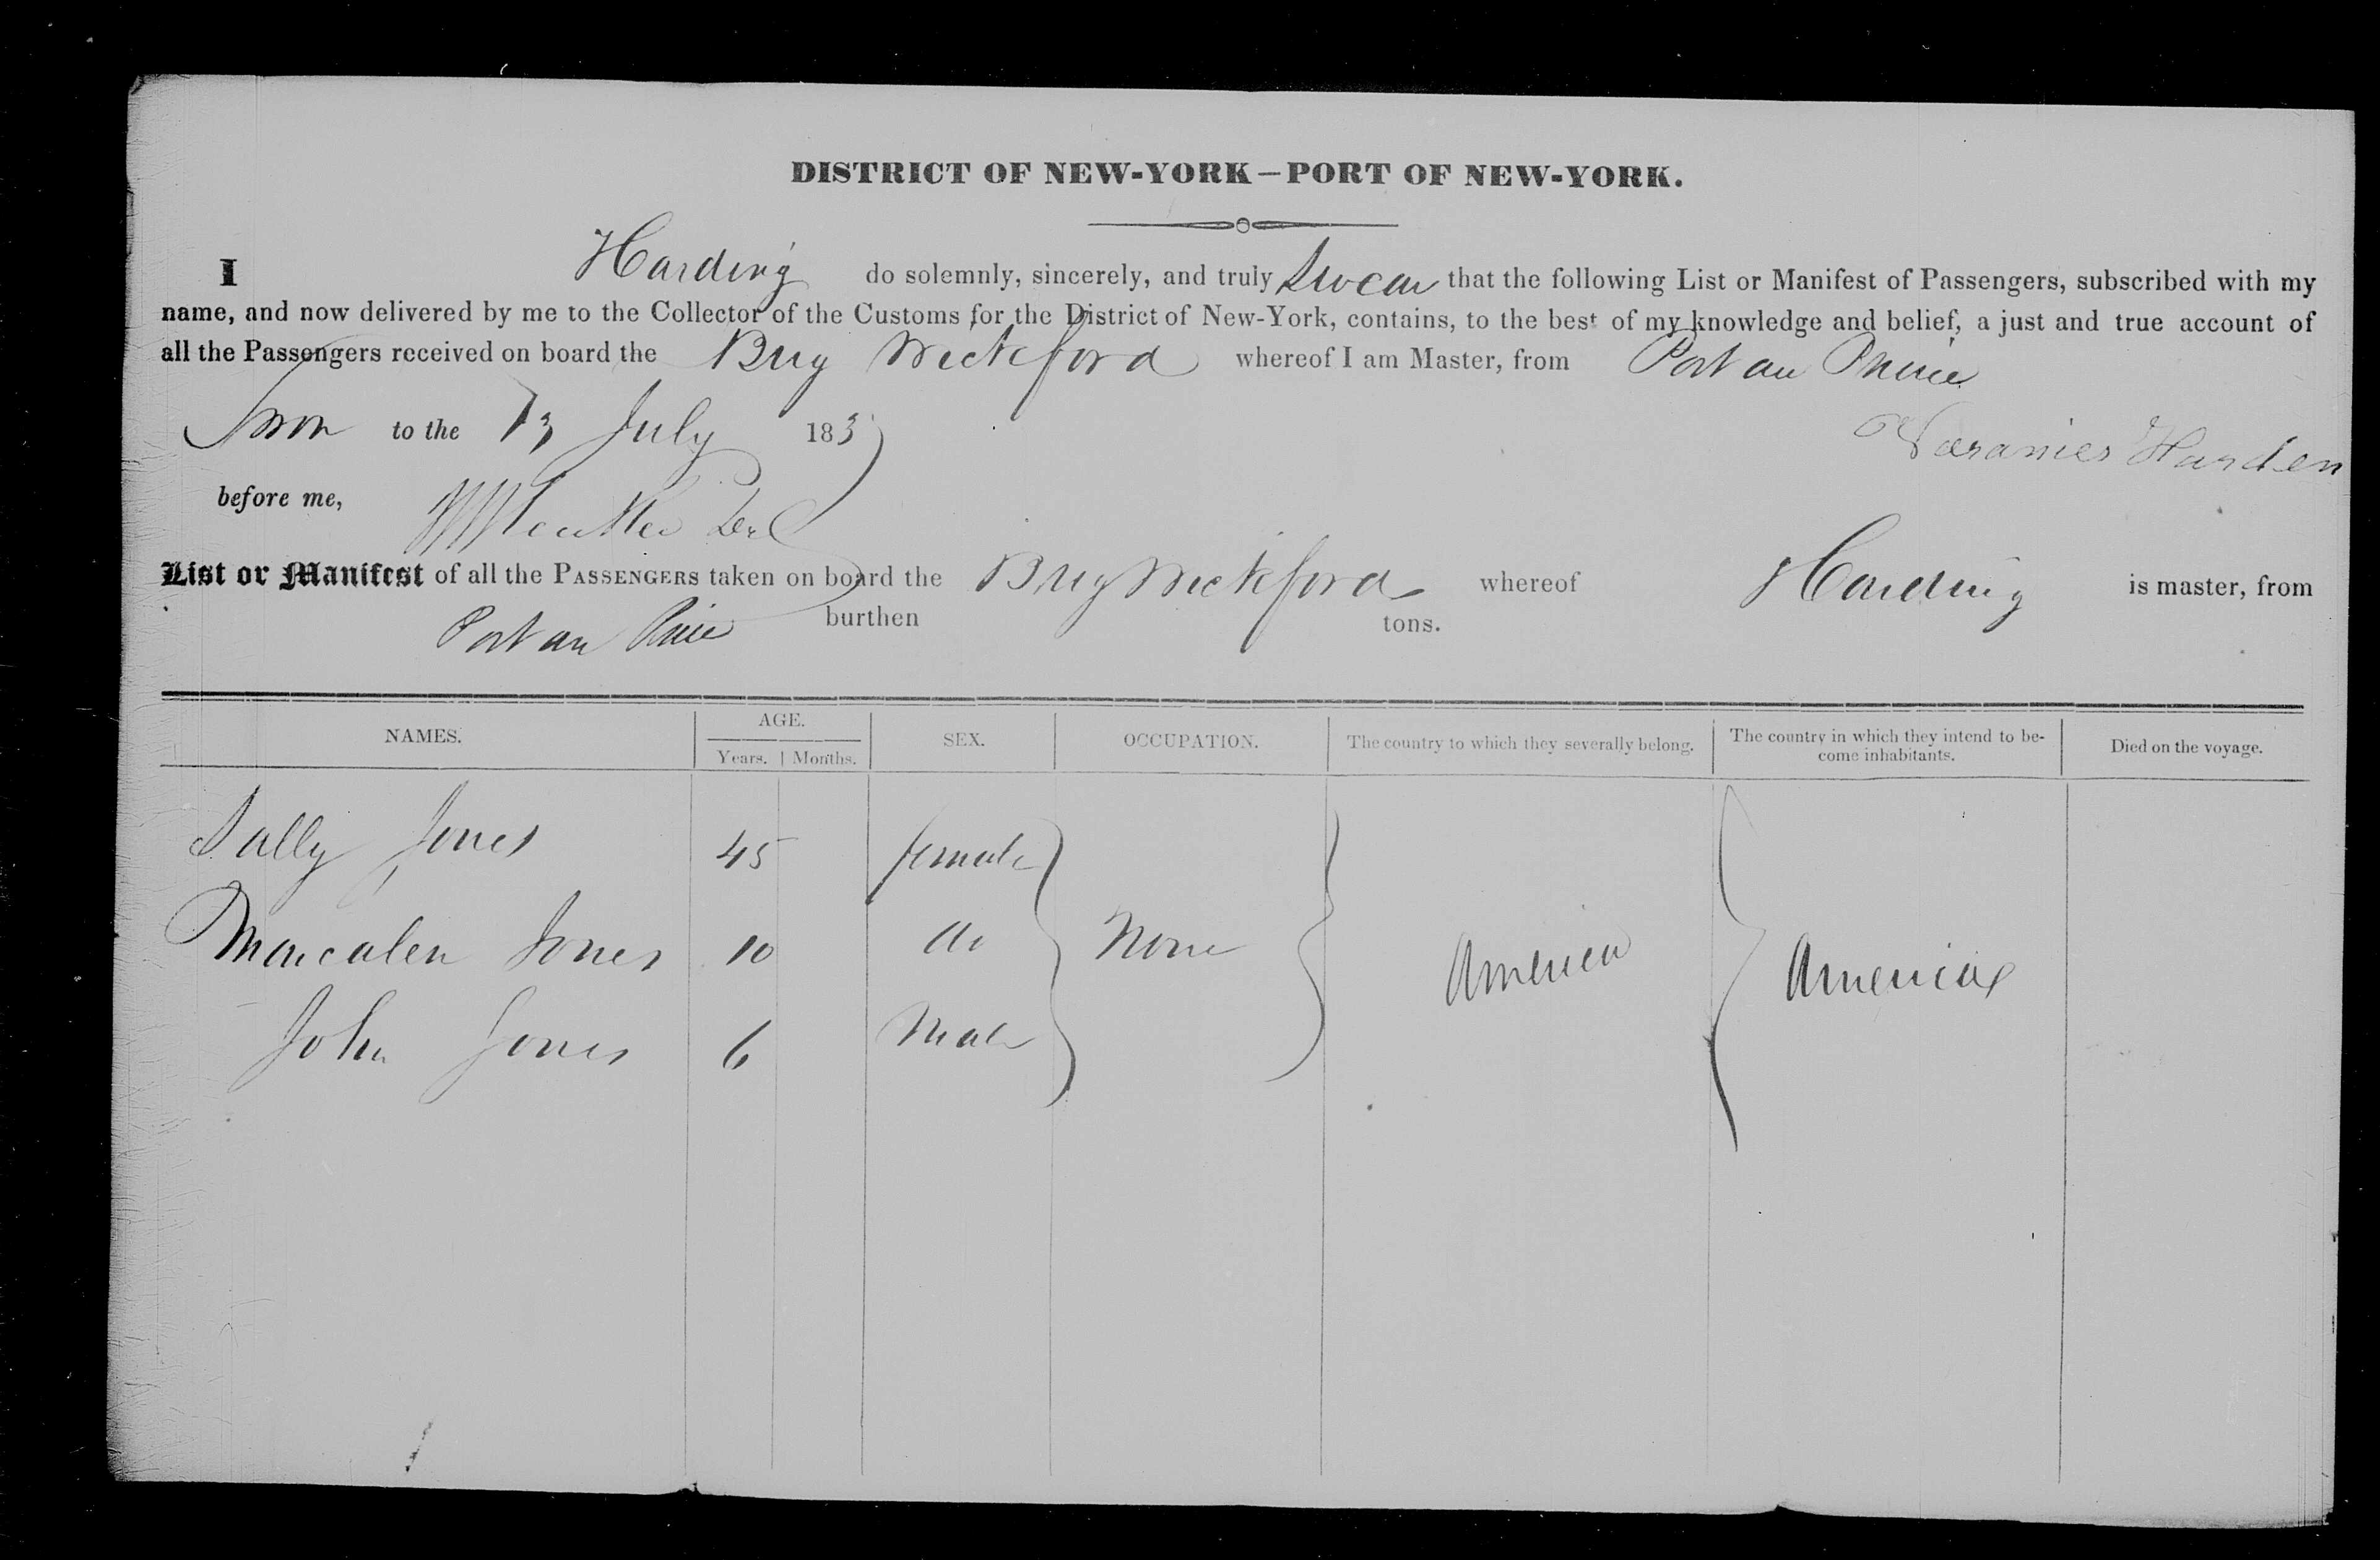 DISTRICT OF NEW-YORK—PORT OF NEW-YORK.
I Harding do solemnly, sincerely, and truly Swear that the following List or Manifest of Passengers, subscribed with my
name, and now delivered by me to the Collector of the Customs for the District of New-York, contains, to the best of my knowledge and belief, a just and true account of
all the Passengers received on board the Brig Wickford whereof I am Master, from Port au Prince
Sworn to the 13 July 183
Harden
before me,
List or Manifest of all the PASSENGERS taken on board the Brig Wickford whereof Harding is master, from
Port au Prince burthen tons.
NAMES. AGE. SEX. OCCUPATION. The country to which they severally belong. The country in which they intend to be- Died on the voyage.
Years. Months. come inhabitants.
Sally Jones 45 female
Jones 10 do None America America
John Jones 6 Male